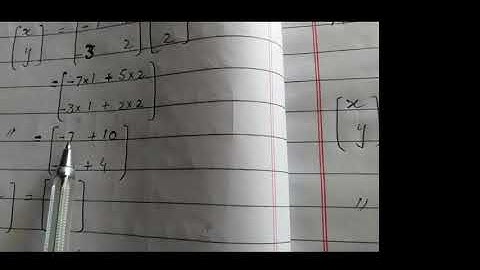 [x y] = [-7 5 -3 2] [1 2]
= [-7×1 + 5×2
-3×1 + 2×2]
" = [-7 + 10
+ 4]
] = [ ]
[x
y]
"